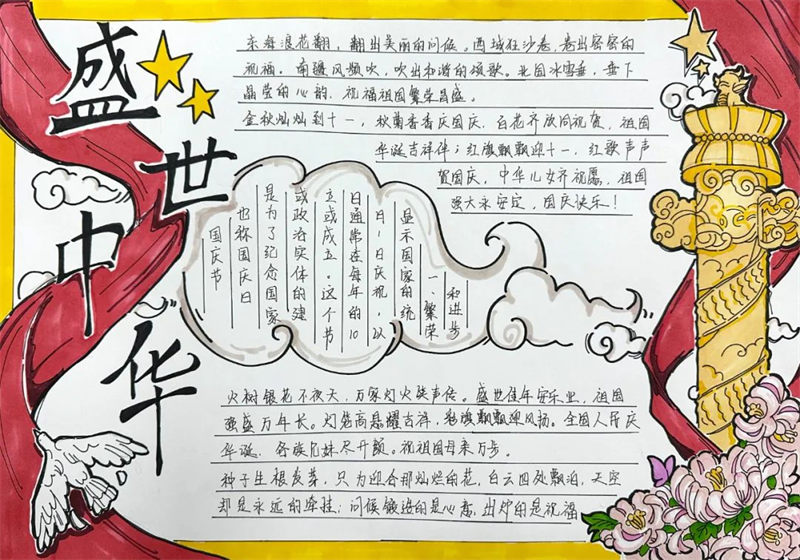 盛世中华
东海浪花翻，翻出美丽的问候。西域狂沙卷，卷出密密的
祝福。南疆风频吹，吹出和谐的颂歌。北国冰雪垂，垂下
晶莹的心韵，祝福祖国繁荣昌盛。
金秋灿灿到十一，秋菊香香庆国庆，百花齐放同祝贺，祖国
华诞吉祥伴；红旗飘飘迎十一，红歌声声
贺国庆，中华儿女齐祝愿，祖国
强大永安定，国庆快乐！
国庆节
也称国庆日
是为了纪念国家
或政治实体的建
立或成立。这个节
日通常在每年的10
月1日庆祝，以
显示国家的统
一、繁荣
和进步
火树银花不夜天，万家灯火笑声传。盛世佳年安乐业，祖国
强盛万年长。灯笼高悬耀吉祥，彩旗飘飘迎风扬。全国人民庆
华诞，各族兄妹尽开颜。祝祖国母亲万步。
种子生根发芽，只为迎合那灿烂的花，白云四处飘泊，天空
却是永远的牵挂；问候锻造的是心意，出炉的是祝福